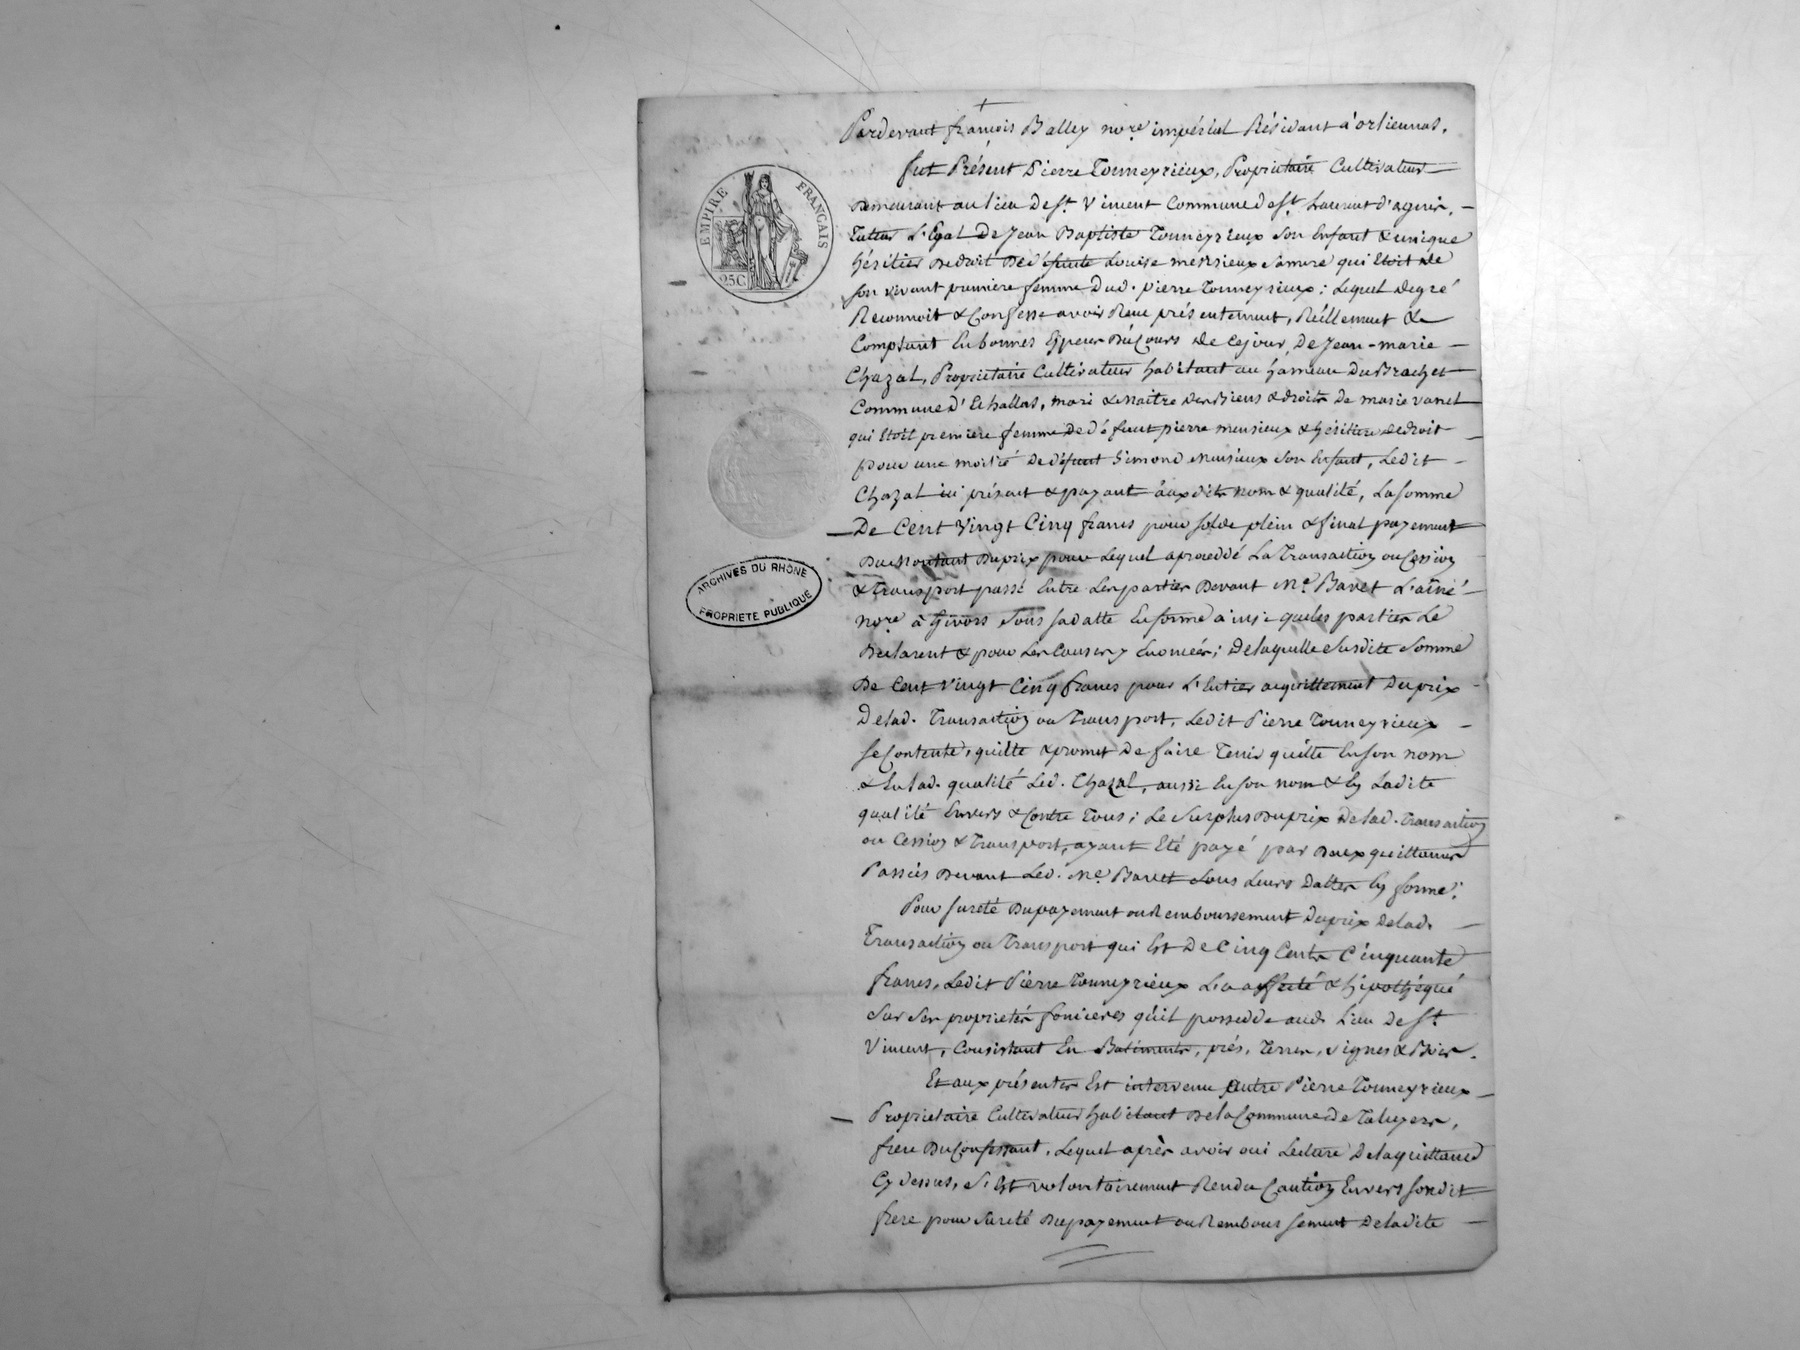 Pardevant françois Balley no.re impérial Résidant à orliennas,
fut Présent Pierre Tonneyrieux, Proprietaire Cultivateur
Demeurant au lieu De St. Vincent Commune de St. Laurent d'agnir,
Tuteur L'Egal De Jean Baptiste Tonneyrieux Son Enfant & unique
héritier De droit De défunte Louise messieux Samere qui Etoit de
Son vivant premiere femme Dud. pierre Tonneyrieux; Lequel de gré
Reconnoit & Confesse avoir Recu présentement, Réellement &
Comptant En bonnes Especes Du Cours de Cejour, De Jean-marie
Chazal, Proprietaire Cultivateur habitant au hameau Du Brachet
Commune d'Echallas, mari & maitre des Biens & droits De marie vanel
qui Etoit premiere femme De défunt pierre meusieux & héritiere de droit
pour une moitié De défunt Simond meusieux Son Enfant, Ledit
Chazal ici présent & payant aux dits nom & qualité, La Somme
De Cent Vingt Cinq francs pour Solde plein & final payement
Du Montant Du prix pour Lequel a procedé La Transaction ou Cession
& Transport passé Entre Les parties Devant Me. Baret L'ainé
no.re à Givors Sous Sa datte En forme ainsi que les parties Le
Declarent & pour Les Causes y Enoncées; De laquelle Susdite Somme
De Cent Vingt Cinq francs pour L'Entier acquittement Du prix
De lad. Transaction ou Transport, Ledit Pierre Tonneyrieux
Se Contente, quitte & promet De faire Tenir quitte En Son nom
& En lad. qualité Led. Chazal, aussi En Son nom & En Ladite
qualité Envers & Contre Tous; Le Surplus Du prix De lad. Transaction
ou Cession & Transport, ayant Eté payé par Deux quittances
Passées Devant Led. Me. Baret Sous Leurs Dattes En forme;
Pour Sureté Du payement ou Remboursement Du prix De lad.
Transaction ou Transport qui Est De Cinq Cents Cinquante
francs, Ledit Pierre Tonneyrieux L'a affecté & hipothéqué
Sur Ses proprietés foncieres qu'il possedde aud. Lieu De St.
Vincent, Consistant En Batiments, prés, Terres, vignes & Bois.
Et aux présentes Est intervenu autre Pierre Tonneyrieux
Proprietaire Cultivateur habitant De la Commune de Taluyers,
frere Du Confessant, Lequel après avoir oui Lecture De la quittance
Cy dessus, S'est volontairement Rendu Caution Envers Sondit
frere pour Sureté Du payement ou Remboursement De ladite
EMPIRE FRANÇAIS
25C
ARCHIVES DU RHÔNE
PROPRIETE PUBLIQUE